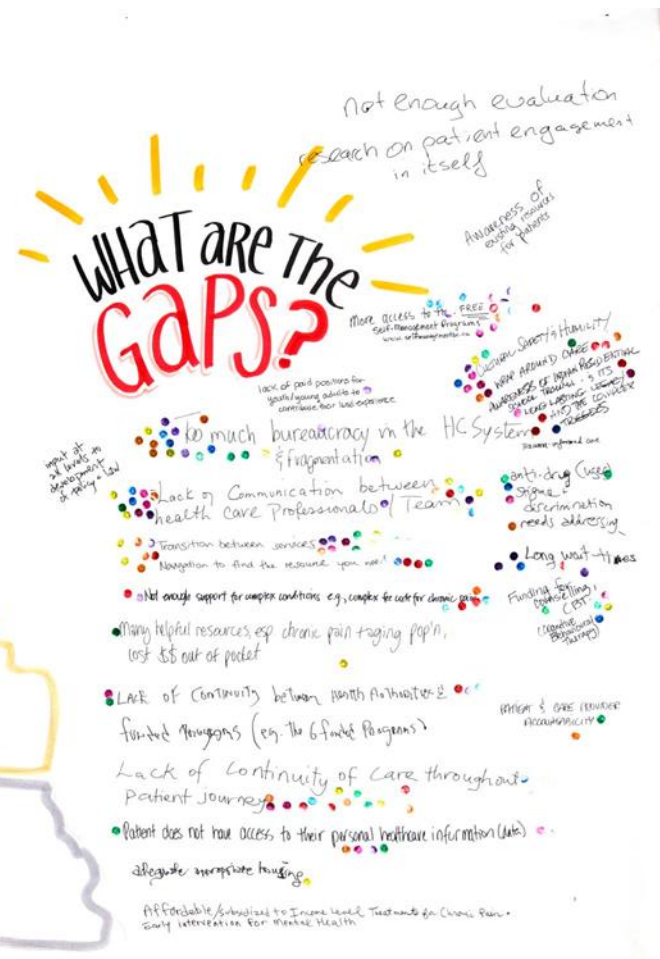 not enough evaluation
research on patient engagement
in itself
Awareness of
existing resources
for patients
WHAT ARE THE
GAPS?
More access to the FREE
Self-Management Programs
www.selfmanagementbc.ca
CULTURAL SAFETY & HUMILITY
WRAP AROUND CARE
AWARENESS OF INDIAN RESIDENTIAL
SCHOOL TRAUMA & ITS
LONG LASTING LEGACY
AND THE COMPLEX
TRAGEDIES
Trauma-informed care
lack of paid positions for
youth/young adults to
contribute their lived experience
Too much bureaucracy in the HC System
& fragmentation
input at
all levels to
development
of policy + law
Lack of Communication between
health care Professionals / Team
anti-drug (use)
stigma +
discrimination
needs addressing
Transition between services
Navigation to find the resource you need
Long wait-times
Not enough support for complex conditions e.g., complex fee code for chronic pain
Funding for
counselling,
CBT
(Cognitive
Behavioural
Therapy)
Many helpful resources, esp chronic pain + aging pop'n,
cost $$ out of pocket
LACK of Continuity between Health Authorities &
funded Programs (eg. The 6 funded Programs)
PATIENT & CARE PROVIDER
ACCOUNTABILITY
Lack of Continuity of Care throughout
Patient journey
Patient does not have access to their personal healthcare information (data)
adequate appropriate housing
Affordable/subsidized to Income Level Treatments for Chronic Pain.
Early intervention for Mental Health